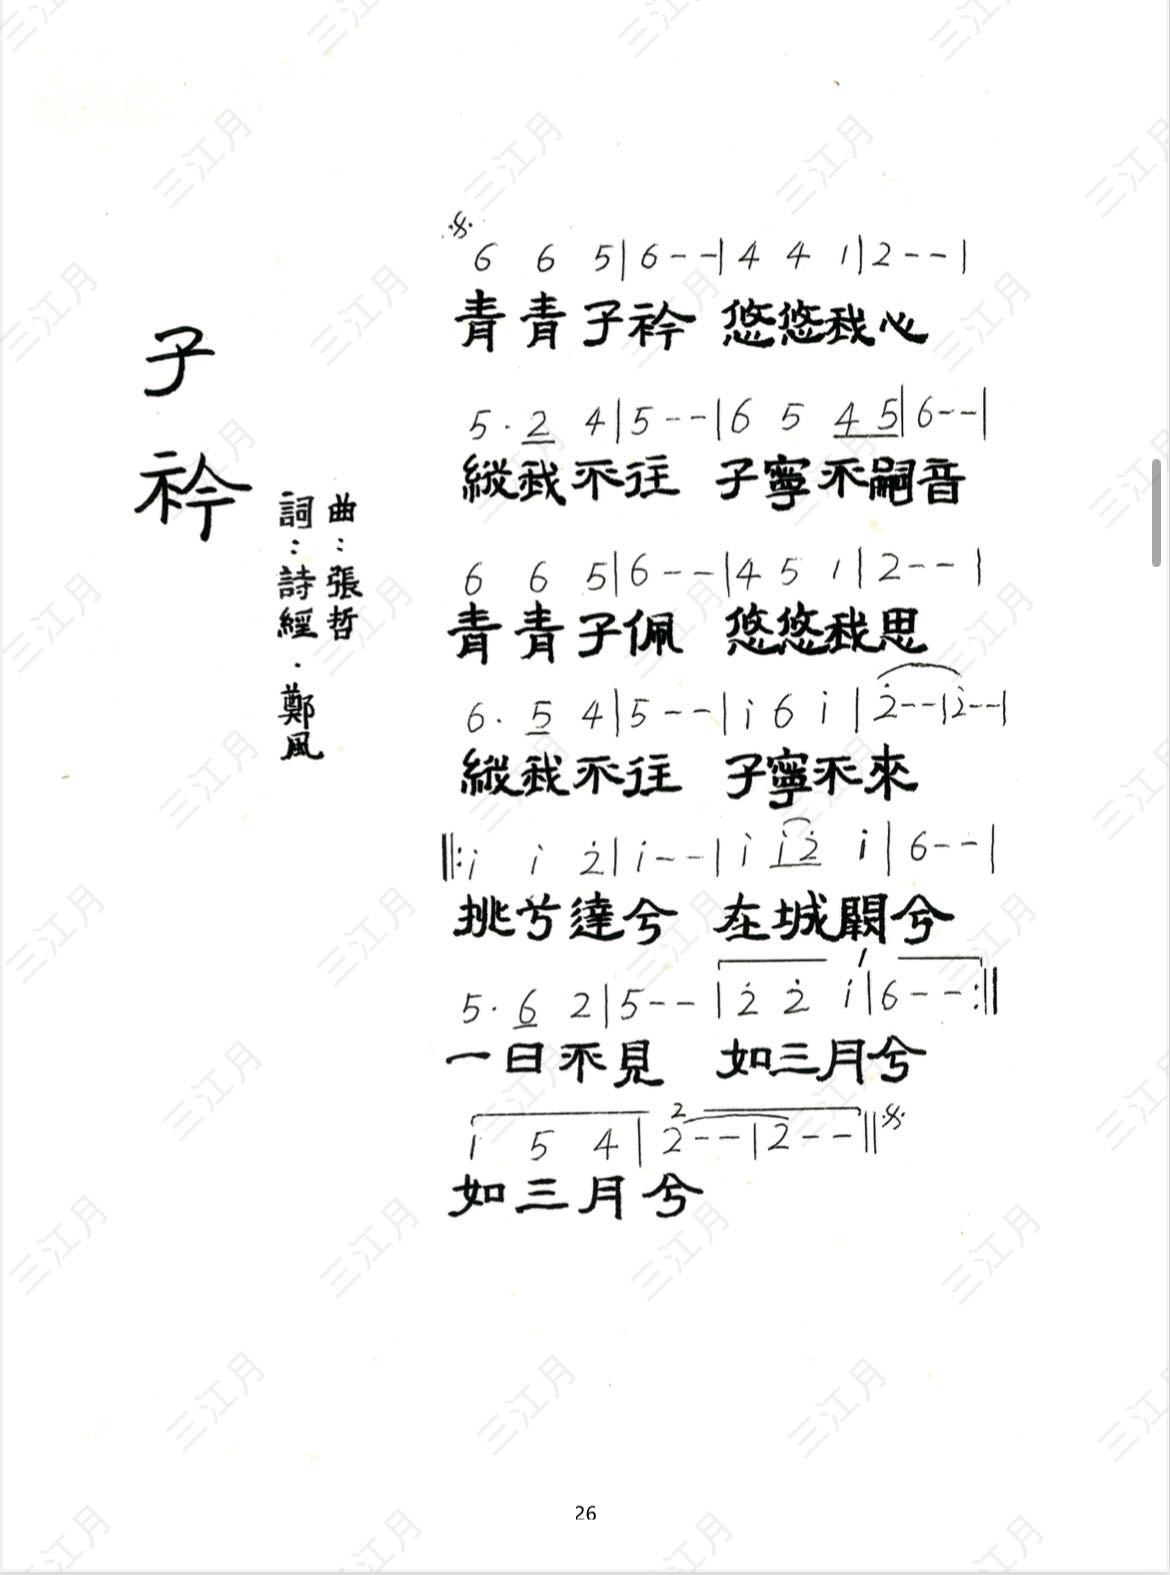 子衿
曲：張哲
詞：詩經·鄭風
6 6 5|6--|4 4 1|2--|
青青子衿 悠悠我心
5·2 4|5--|6 5 4 5|6--|
縱我不往 子寧不嗣音
6 6 5|6--|4 5 1|2--|
青青子佩 悠悠我思
6·5 4|5--|i 6 i|2̇--|2̇--|
縱我不往 子寧不來
‖:i i 2̇|i--|i i 2̇ i|6--|
挑兮達兮 在城闕兮
1
5·6 2|5--|2̇ 2̇ i|6--:‖
一日不見 如三月兮
2
i 5 4|2--|2--‖𝄋
如三月兮
26
三江月